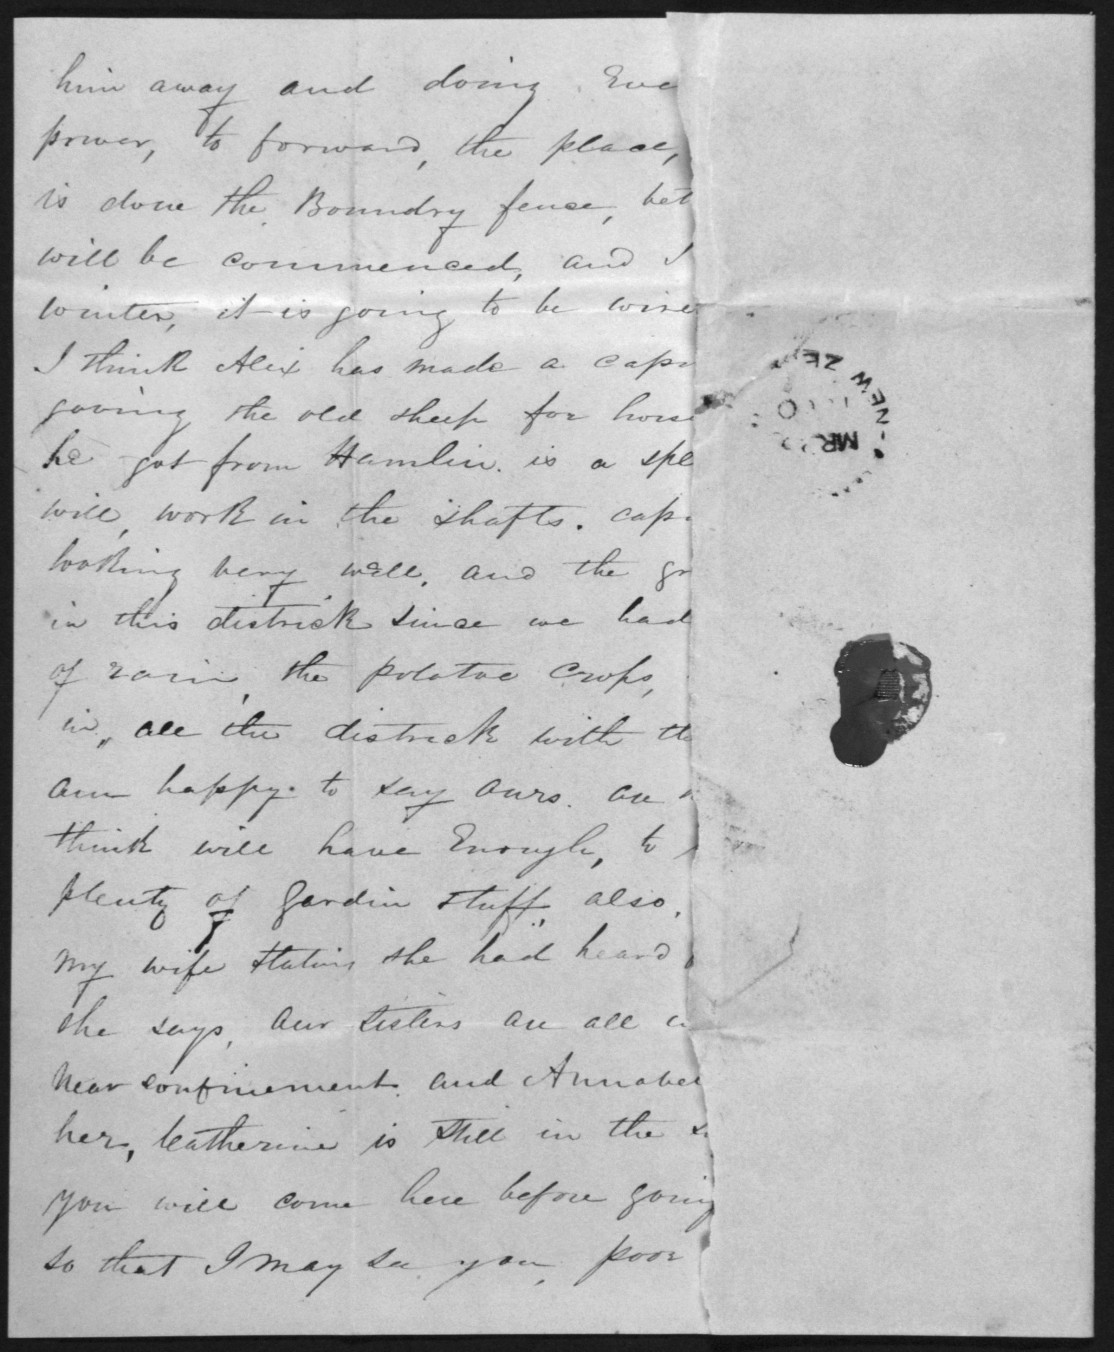 him away and doing Eve
power, to forward, the place,
is done the Boundry fence, bet
will be commenced, and I
winter, it is going to be wire
I think Alix has made a cap
goving the old sheep for hors
he got from Hamlin. is a sple
will, work in the shafts. cap
looking very well, and the gr
in this districk since we had
of rain, the potatoe crops,
in, all the districk with th
am happy to say ours. are
think will have Enough, to
plenty of gardin stuff, also.
my wife stating she had heard
she says, our sisters are all
near confinement. and Annabel
her, Catherine is still in the s
you will come here before going
so that I may see you, poor
NEW ZE